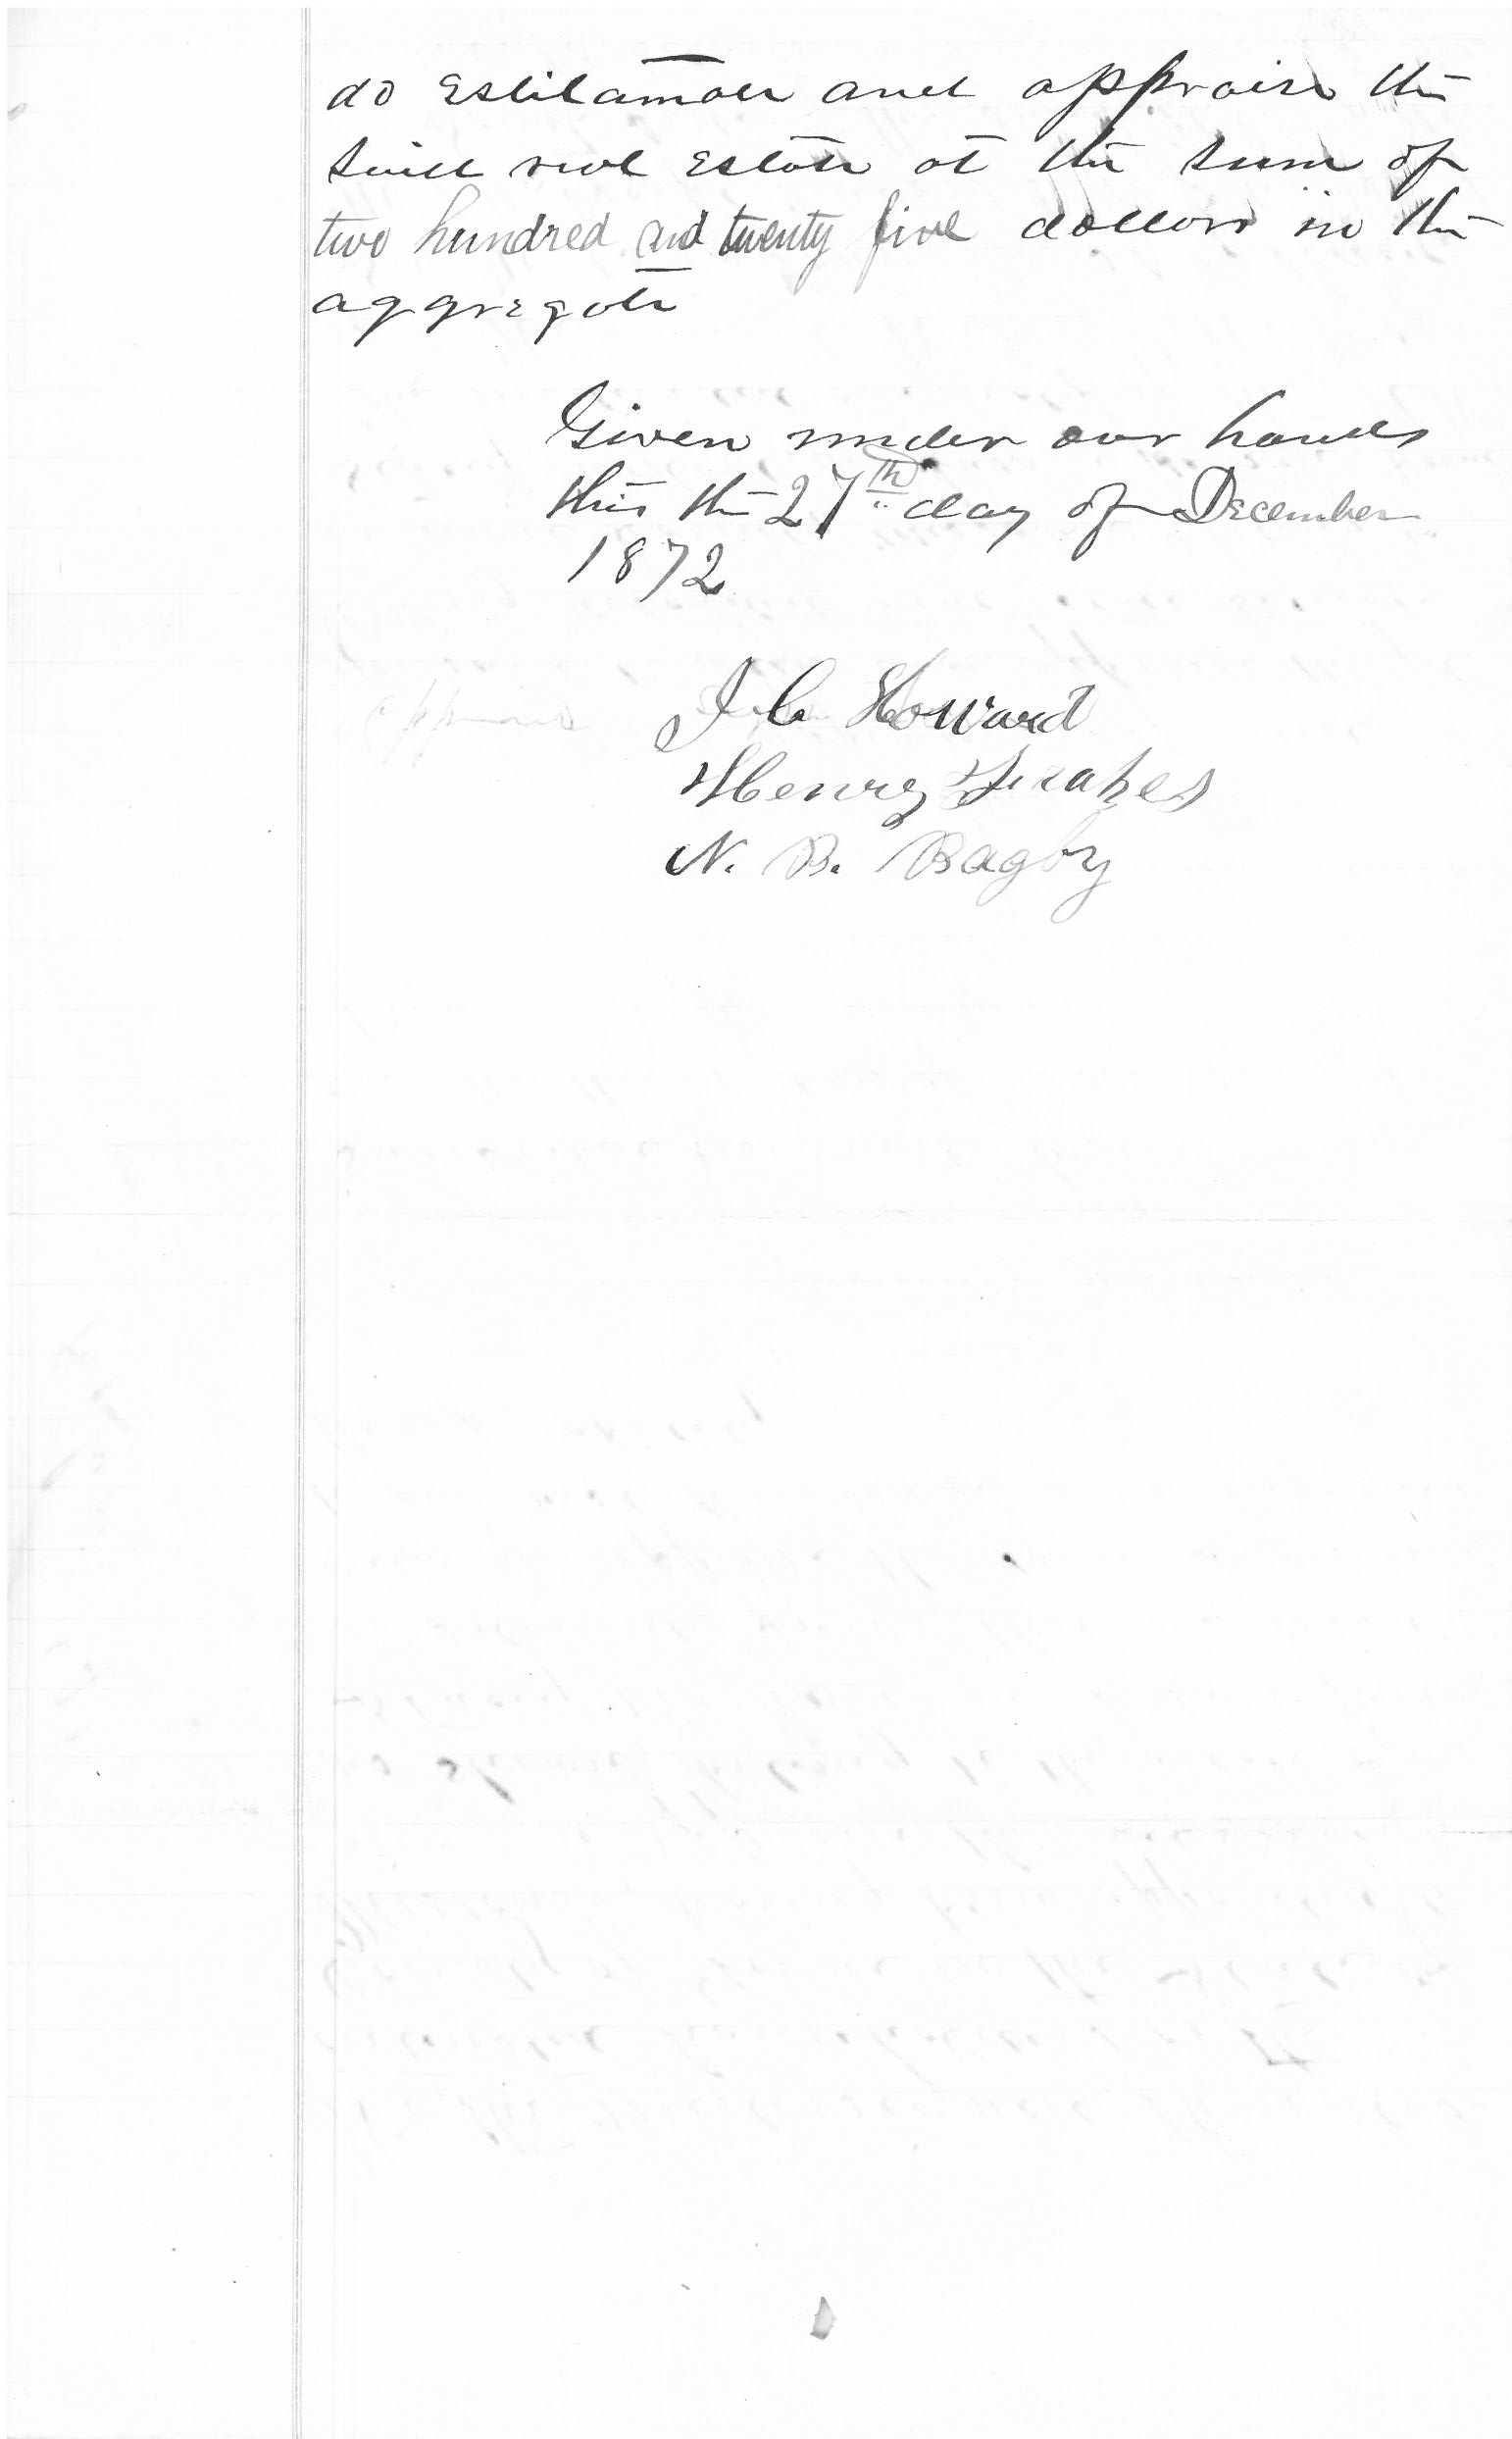 do Estitamate and appraise the
said real Estate at the sum of
two hundred and twenty five dollars in the
aggregate
Given under our hands
this the 27th day of December
1872
J. C. Howard
Henry
N. B. Bagby